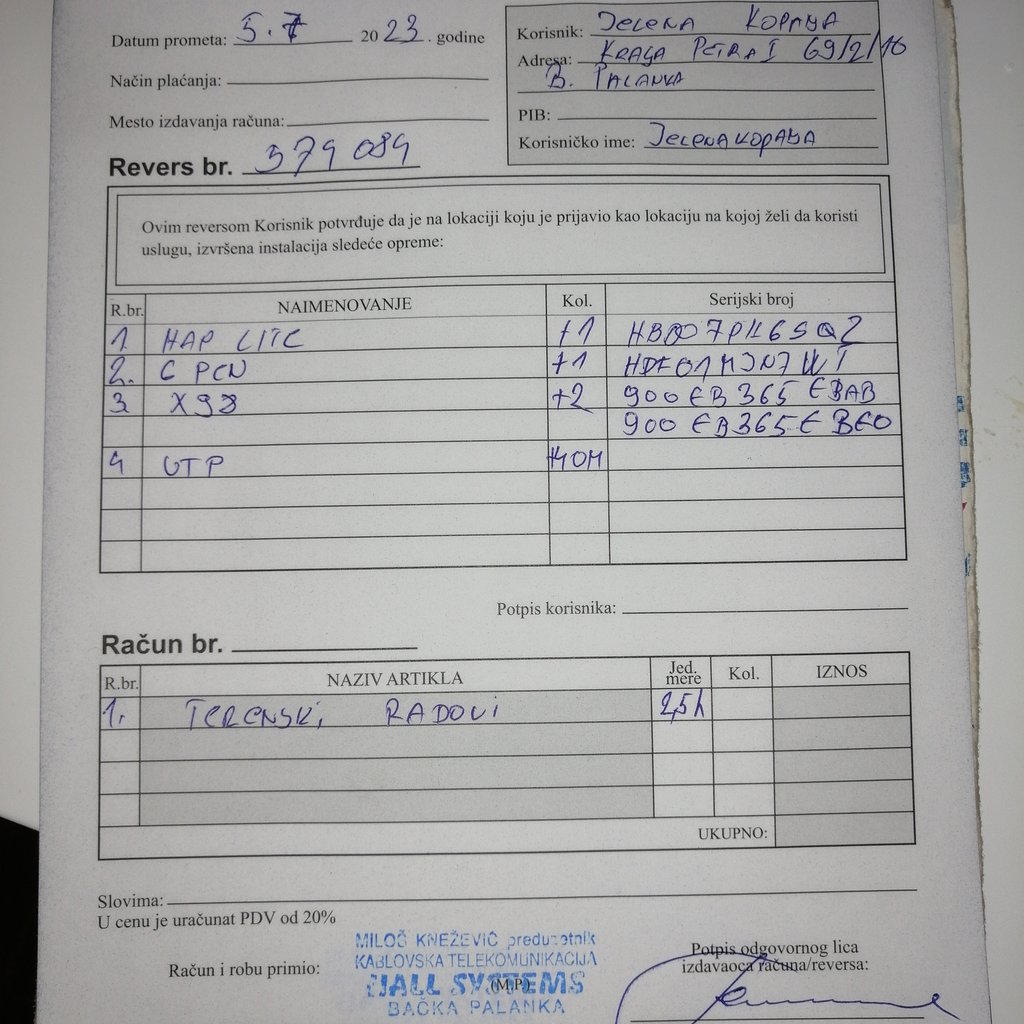 Datum prometa: 5.7 2023. godine
Način plaćanja:
Mesto izdavanja računa:
Revers br. 379 089
Korisnik: JELENA KOPANJA
Adresa: KRALJA PETRA I 69/2/16
B. PALANKA
PIB:
Korisničko ime: JELENAKOPANJA
Ovim reversom Korisnik potvrđuje da je na lokaciji koju je prijavio kao lokaciju na kojoj želi da koristi
uslugu, izvršena instalacija sledeće opreme:
R.br. NAIMENOVANJE Kol. Serijski broj
1. HAP LITE +1
2. +1
3 X98 +2 900EB365EBAB
900EB365EBE0
4 UTP +40M
Potpis korisnika:
Račun br.
R.br. NAZIV ARTIKLA Jed. mere Kol. IZNOS
1. TERENSKI RADOVI 2,5h
UKUPNO:
Slovima:
U cenu je uračunat PDV od 20%
Račun i robu primio:
MILOŠ KNEŽEVIĆ preduzetnik
KABLOVSKA TELEKOMUNIKACIJA
SYSTEMS
(M.P.)
BAČKA PALANKA
Potpis odgovornog lica
izdavaoca računa/reversa: